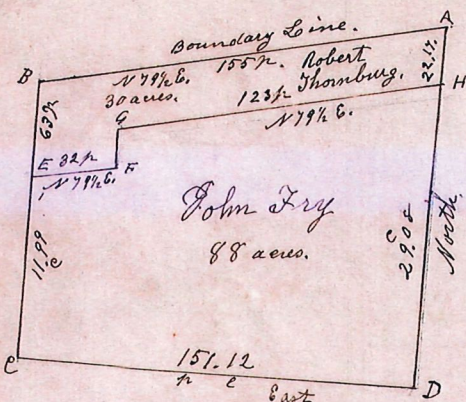 A
Boundary Line.
B
N 79½ E. 155 p. Robert
30 acres. Thornburg.
22.17.
63 p
G
123 p
H
N 79½ E.
E 32 p F
N 79½ E.
John Fry
88 acres.
11.99 c
29.08 c
North
C
151.12
p c
East
D